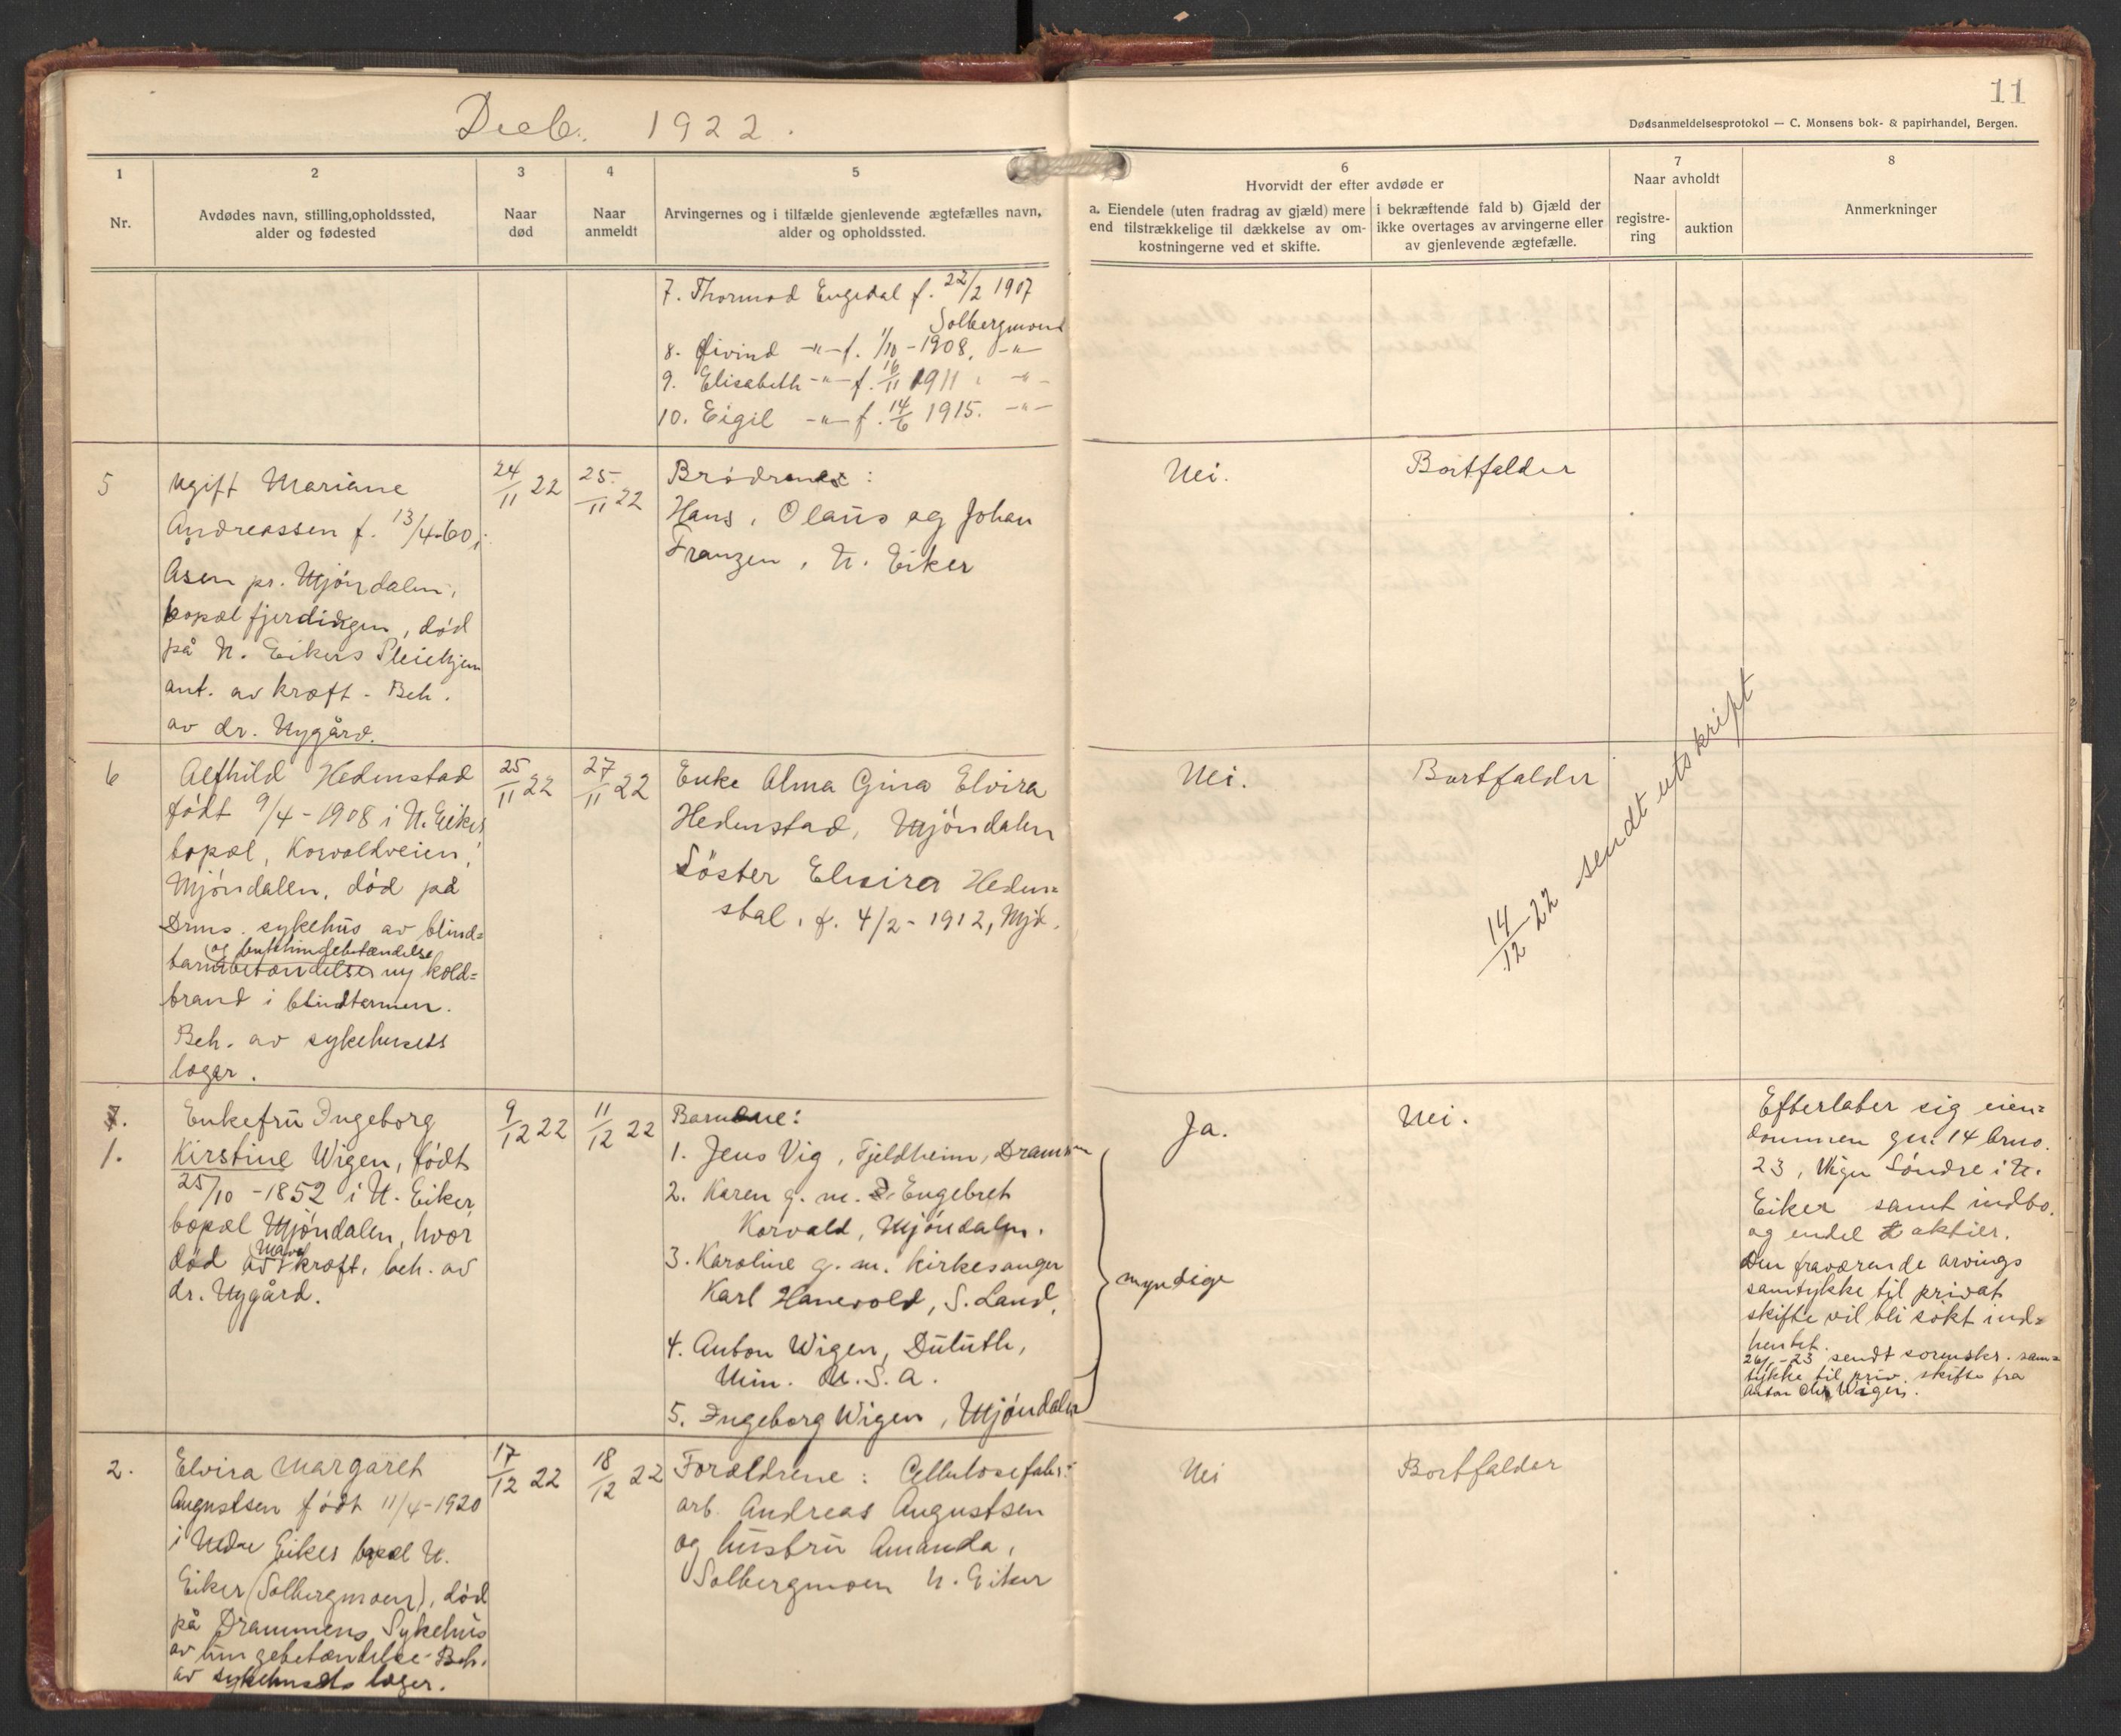 Decb. 1922.
11
Dødsanmeldelsesprotokol — C. Monsens bok- & papirhandel, Bergen.
1
Nr.
2
Avdødes navn, stilling,opholdssted,
alder og fødested
3
Naar
død
4
Naar
anmeldt
5
Arvingernes og i tilfælde gjenlevende ægtefælles navn,
alder og opholdssted.
6
Hvorvidt der efter avdøde er
a. Eiendele (uten fradrag av gjæld) mere
end tilstrækkelige til dækkelse av om-
kostningerne ved et skifte.
i bekræftende fald b) Gjæld der
ikke overtages av arvingerne eller
av gjenlevende ægtefælle.
7
Naar avholdt
registre-
ring
auktion
8
Anmerkninger
7. Thormod Engedal f. 22/2 1907
Solbergmoen
8. Øivind -"- f. 1/10 - 1908, -"-
9. Elisabeth -"- f. 16/11 1911, -"-
10. Eigil -"- f. 14/6 1915. -"-
5
ugift Mariane
Andreassen f. 13/4-60 i
Åsen pr. Mjøndalen,
bopæl fjerdingen, død
på N. Eikers Pleiehjem
ant. av kræft - Beh.
av dr. Nygård.
24/11 22
25/11 22
Brødrene:
Hans, Olaus og Johan
Franzen, N. Eiker
Nei.
Bortfalder
6
Alfhild Hedenstad
født 9/4 - 1908 i N. Eiker
bopæl, Korvoldveien,
Mjøndalen, død på
Drms. sykehus av blind=
og bukhindebetændelse
tarmbetændelse ny kold=
brand i blindtarmen.
Beh. av sykehusets
læger.
25/11 22
27/11 22
Enke Alma Gina Elvira
Hedenstad, Mjøndalen
Søster Elvira Heden=
stal, f. 4/2 - 1912, Mjd.
Nei.
Bortfalder
14/12 22 sendt utskrift
7.
1.
Enkefru Ingeborg
Kirstine Wigen, født
25/10 - 1852 i N. Eiker,
bopæl Mjøndalen, hvor
død av mavekræft, beh. av
dr. Nygård.
9/12 22
11/12 22
Barnene:
1. Jens Vig, Fjeldheim, Drammen
2. Karen g. m. Engebret
Korvald, Mjøndalen.
3. Karoline g. m. kirkesanger
Karl Hanevold, S. Land,
4. Anton Wigen, Duluth,
Min. U.S.A.
5. Ingeborg Wigen, Mjøndalen
myndige
Ja.
Nei.
Efterlater sig eien=
dommen gn. 14 brno.
23, Vigen Søndre i N.
Eiker samt indbo.
og endel aktier.
Den fraværende arvings
samtykke til privat
skifte vil bli søkt ind=
hentet.
26/1 - 23 sendt sorenskr. sam=
tykke til priv. skifte fra
Anton Chr. Wigen.
2.
Elvira Margaret
Augustsen født 11/4 - 1920
i Nedre Eiker bopæl N.
Eiker (Solbergmoen), død
på Drammens Sykehus
av lungebetændelse - Beh.
av sykehusets læger.
17/12 22
18/12 22
Forældrene: Cellulosefabr.-
arb. Andreas Augustsen
og hustru Amanda,
Solbergmoen N. Eiker
Nei
Bortfalder